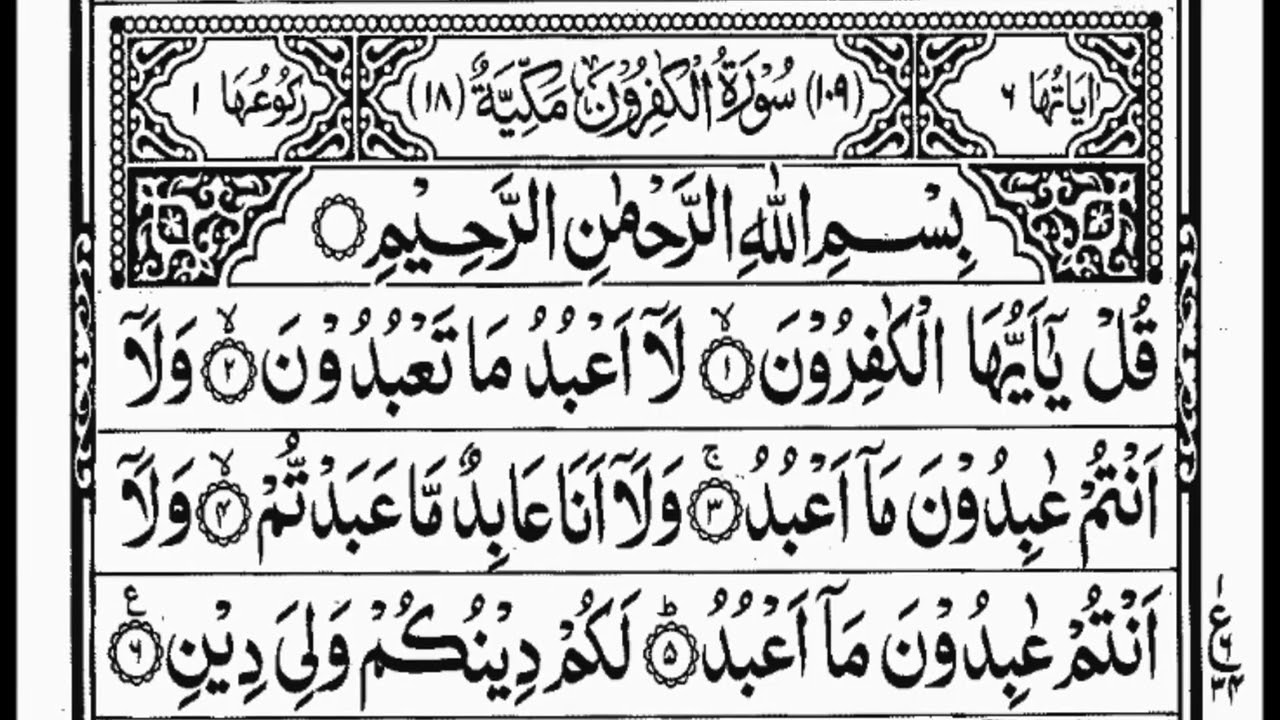 اٰيَاتُهَا ٦ (١٠٩) سُوْرَةُ الْكٰفِرُوْنَ مَكِّيَّةٌ (١٨) رُكُوْعُهَا ١
بِسْمِ اللّٰهِ الرَّحْمٰنِ الرَّحِيْمِ ۝
قُلْ يٰٓاَيُّهَا الْكٰفِرُوْنَ ۝١ۙ لَآ اَعْبُدُ مَا تَعْبُدُوْنَ ۝٢ۙ وَلَآ
اَنْتُمْ عٰبِدُوْنَ مَآ اَعْبُدُ ۝٣ۚ وَلَآ اَنَا عَابِدٌ مَّا عَبَدْتُّمْ ۝٤ۙ وَلَآ
اَنْتُمْ عٰبِدُوْنَ مَآ اَعْبُدُ ۝٥ؕ لَكُمْ دِيْنُكُمْ وَلِيَ دِيْنِ ۝٦ ع
١
ع
٦
٣٤